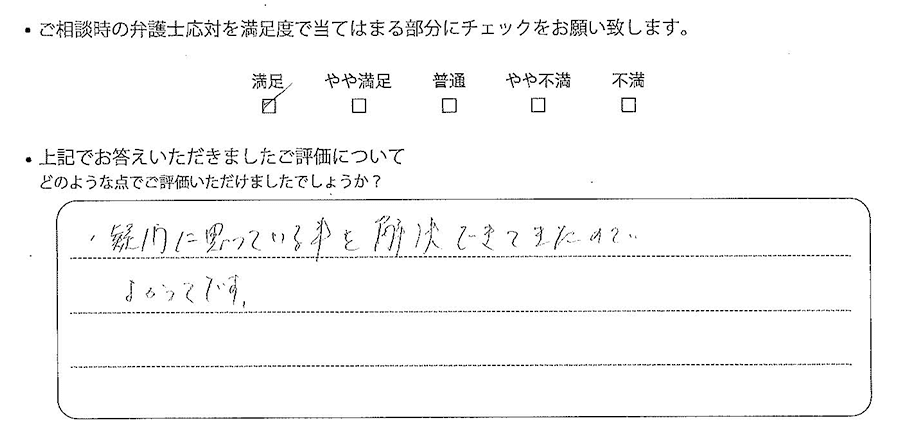 ・ご相談時の弁護士応対を満足度で当てはまる部分にチェックをお願い致します。
満足 やや満足 普通 やや不満 不満
・上記でお答えいただきましたご評価について
どのような点でご評価いただけましたでしょうか？
・疑問に思っている事を解決できてきたので
よかったです。